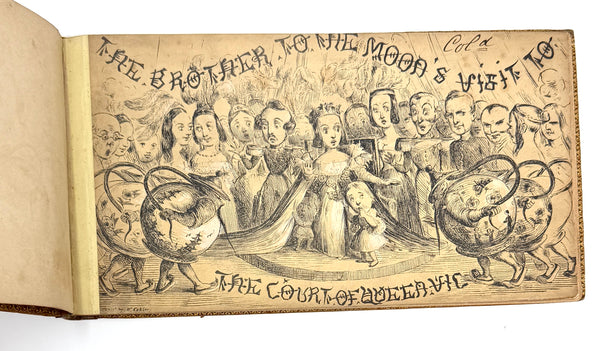 Col'd
THE BROTHER TO THE MOON'S VISIT TO
THE COURT OF QUEEN VIC